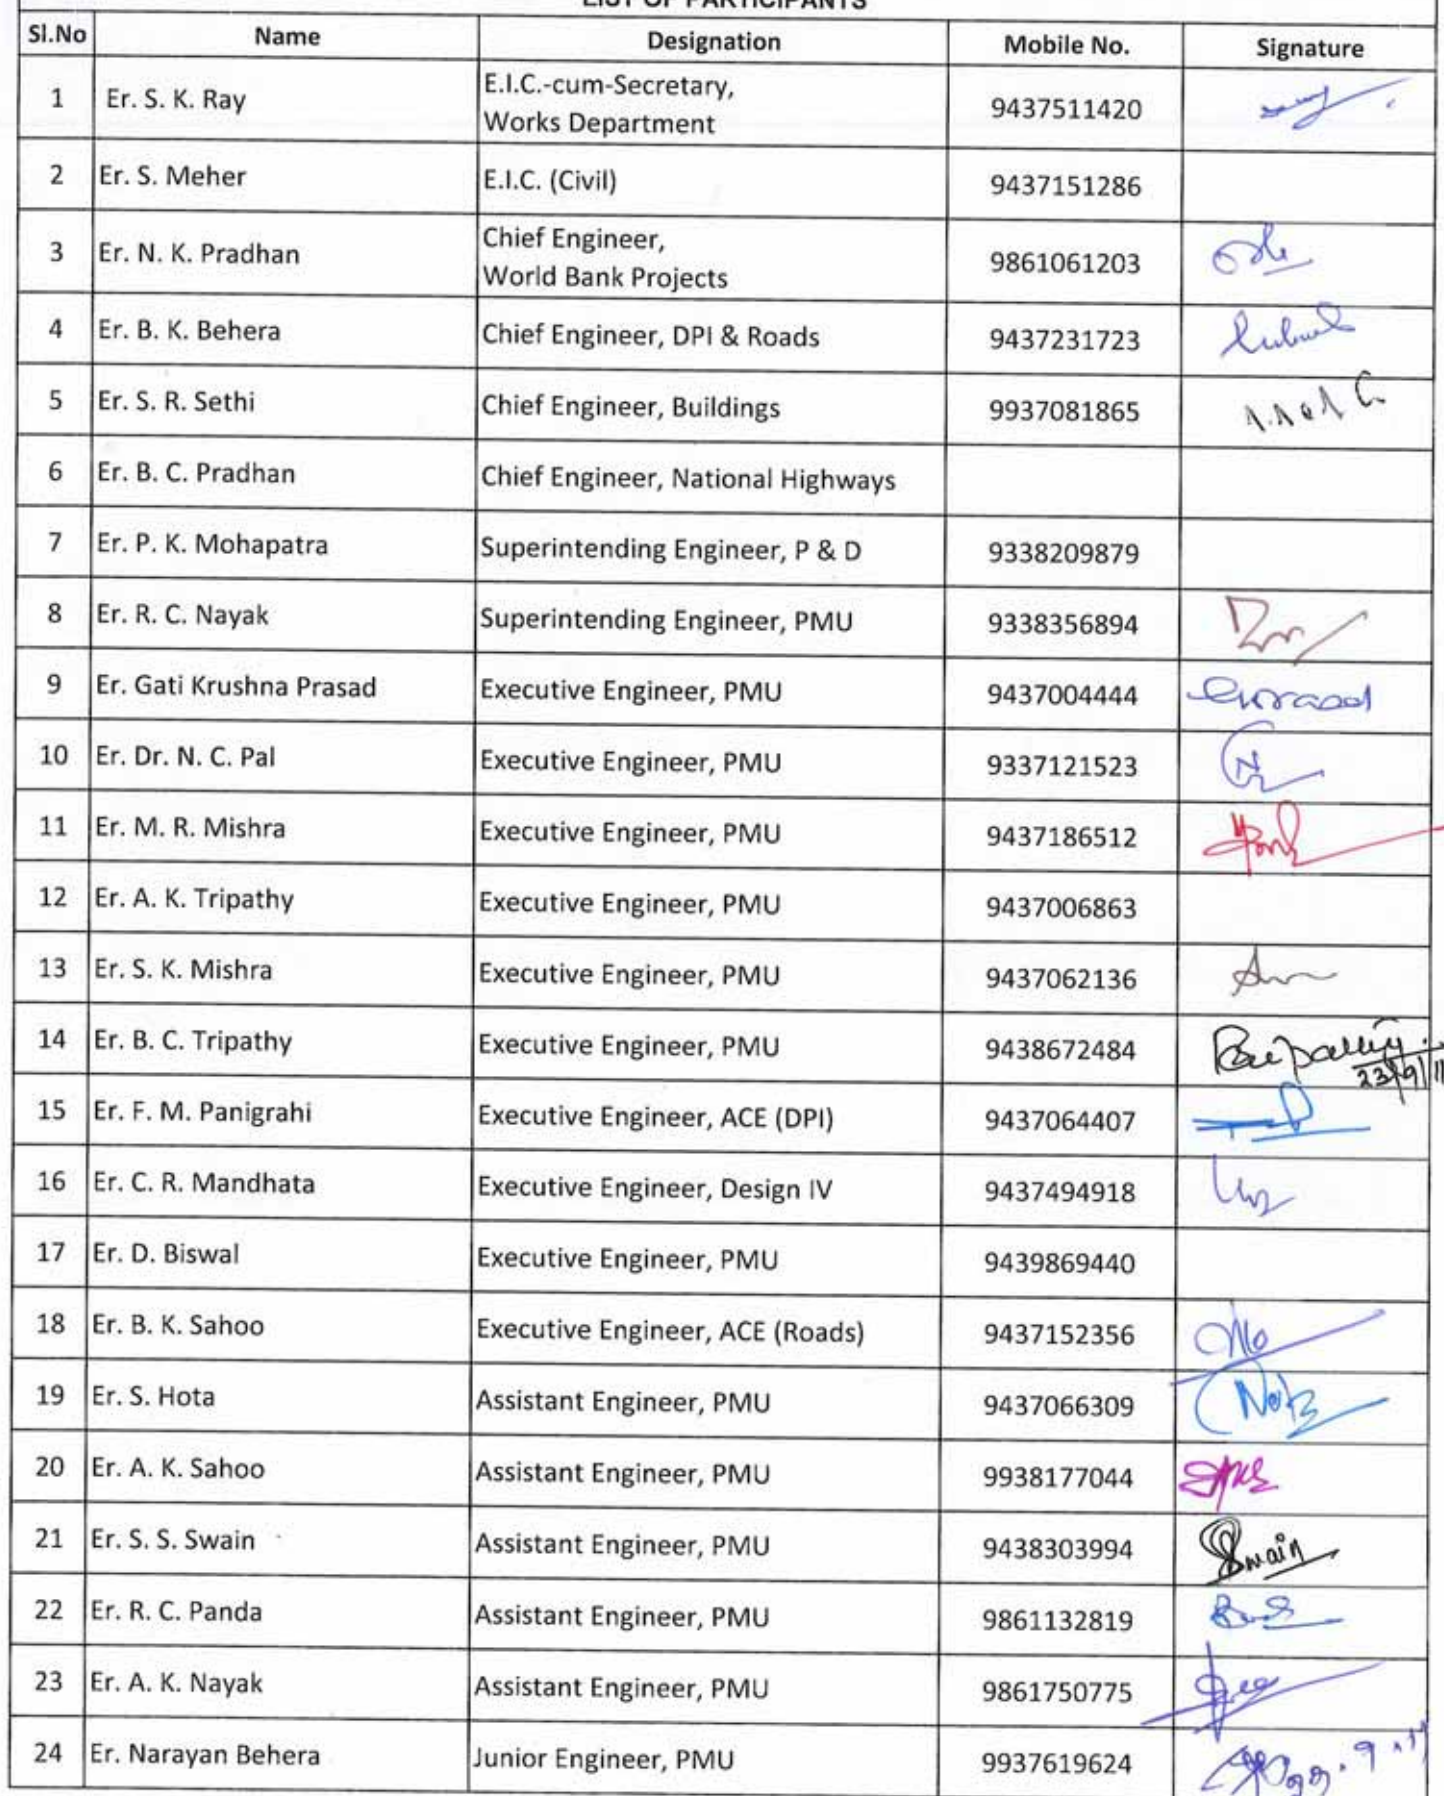 LIST OF PARTICIPANTS
Sl.No Name Designation Mobile No. Signature
1 Er. S. K. Ray E.I.C.-cum-Secretary,
Works Department 9437511420
2 Er. S. Meher E.I.C. (Civil) 9437151286
3 Er. N. K. Pradhan Chief Engineer,
World Bank Projects 9861061203
4 Er. B. K. Behera Chief Engineer, DPI & Roads 9437231723
5 Er. S. R. Sethi Chief Engineer, Buildings 9937081865
6 Er. B. C. Pradhan Chief Engineer, National Highways
7 Er. P. K. Mohapatra Superintending Engineer, P & D 9338209879
8 Er. R. C. Nayak Superintending Engineer, PMU 9338356894
9 Er. Gati Krushna Prasad Executive Engineer, PMU 9437004444
10 Er. Dr. N. C. Pal Executive Engineer, PMU 9337121523
11 Er. M. R. Mishra Executive Engineer, PMU 9437186512
12 Er. A. K. Tripathy Executive Engineer, PMU 9437006863
13 Er. S. K. Mishra Executive Engineer, PMU 9437062136
14 Er. B. C. Tripathy Executive Engineer, PMU 9438672484
23/9/11
15 Er. F. M. Panigrahi Executive Engineer, ACE (DPI) 9437064407
16 Er. C. R. Mandhata Executive Engineer, Design IV 9437494918
17 Er. D. Biswal Executive Engineer, PMU 9439869440
18 Er. B. K. Sahoo Executive Engineer, ACE (Roads) 9437152356
19 Er. S. Hota Assistant Engineer, PMU 9437066309
20 Er. A. K. Sahoo Assistant Engineer, PMU 9938177044
21 Er. S. S. Swain Assistant Engineer, PMU 9438303994 Swain
22 Er. R. C. Panda Assistant Engineer, PMU 9861132819
23 Er. A. K. Nayak Assistant Engineer, PMU 9861750775
24 Er. Narayan Behera Junior Engineer, PMU 9937619624